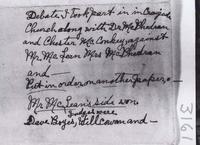 Debate I took part in in Craig
Church along with Dr McPhedran
and Chester McConkey, against
Mr. McLean Mrs McPhedran
and —
Put in order on another paper.
Mr McLean's side won.
Judges were
Dave Boyes, Will Cowan and —
3161